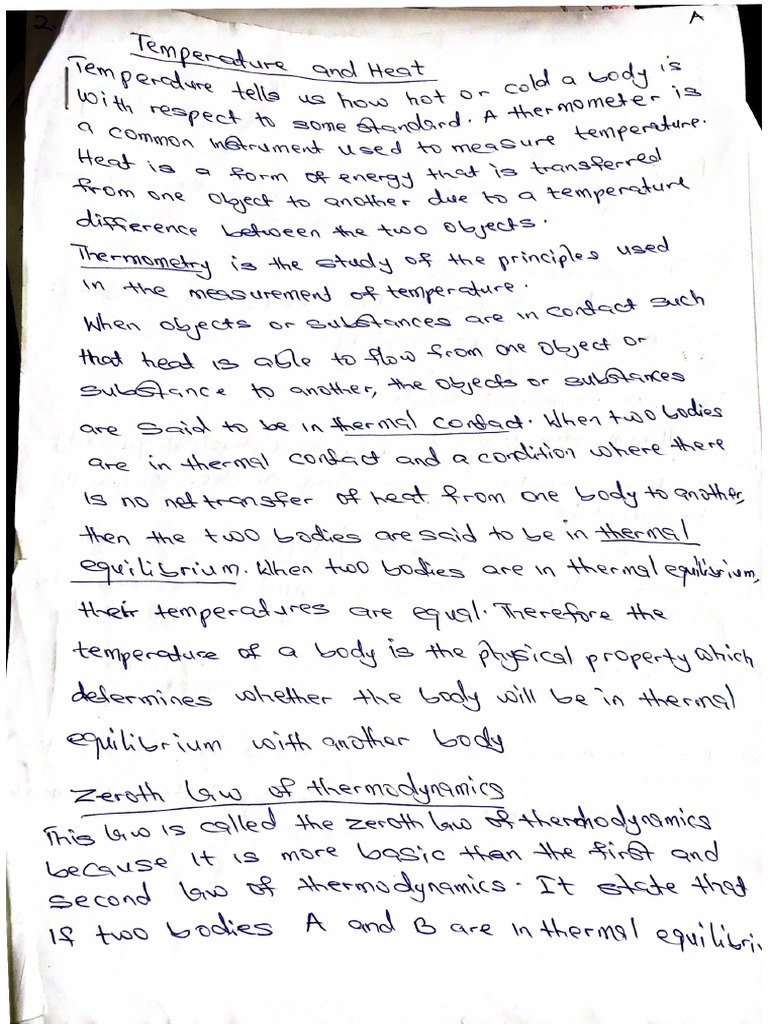 2.
A
Temperature and Heat
Temperature tells us how hot or cold a body is
with respect to some standard. A thermometer is
a common instrument used to measure temperature.
Heat is a form of energy that is transferred
from one object to another due to a temperature
difference between the two objects.
Thermometry is the study of the principles used
in the measurement of temperature.
When objects or substances are in contact such
that heat is able to flow from one object or
substance to another, the objects or substances
are said to be in thermal contact. When two bodies
are in thermal contact and a condition where there
is no net transfer of heat from one body to another,
then the two bodies are said to be in thermal
equilibrium. When two bodies are in thermal equilibrium,
their temperatures are equal. Therefore the
temperature of a body is the physical property which
determines whether the body will be in thermal
equilibrium with another body
Zeroth law of thermodynamics
This law is called the zeroth law of thermodynamics
because it is more basic than the first and
second law of thermodynamics. It state that
if two bodies A and B are in thermal equilibri